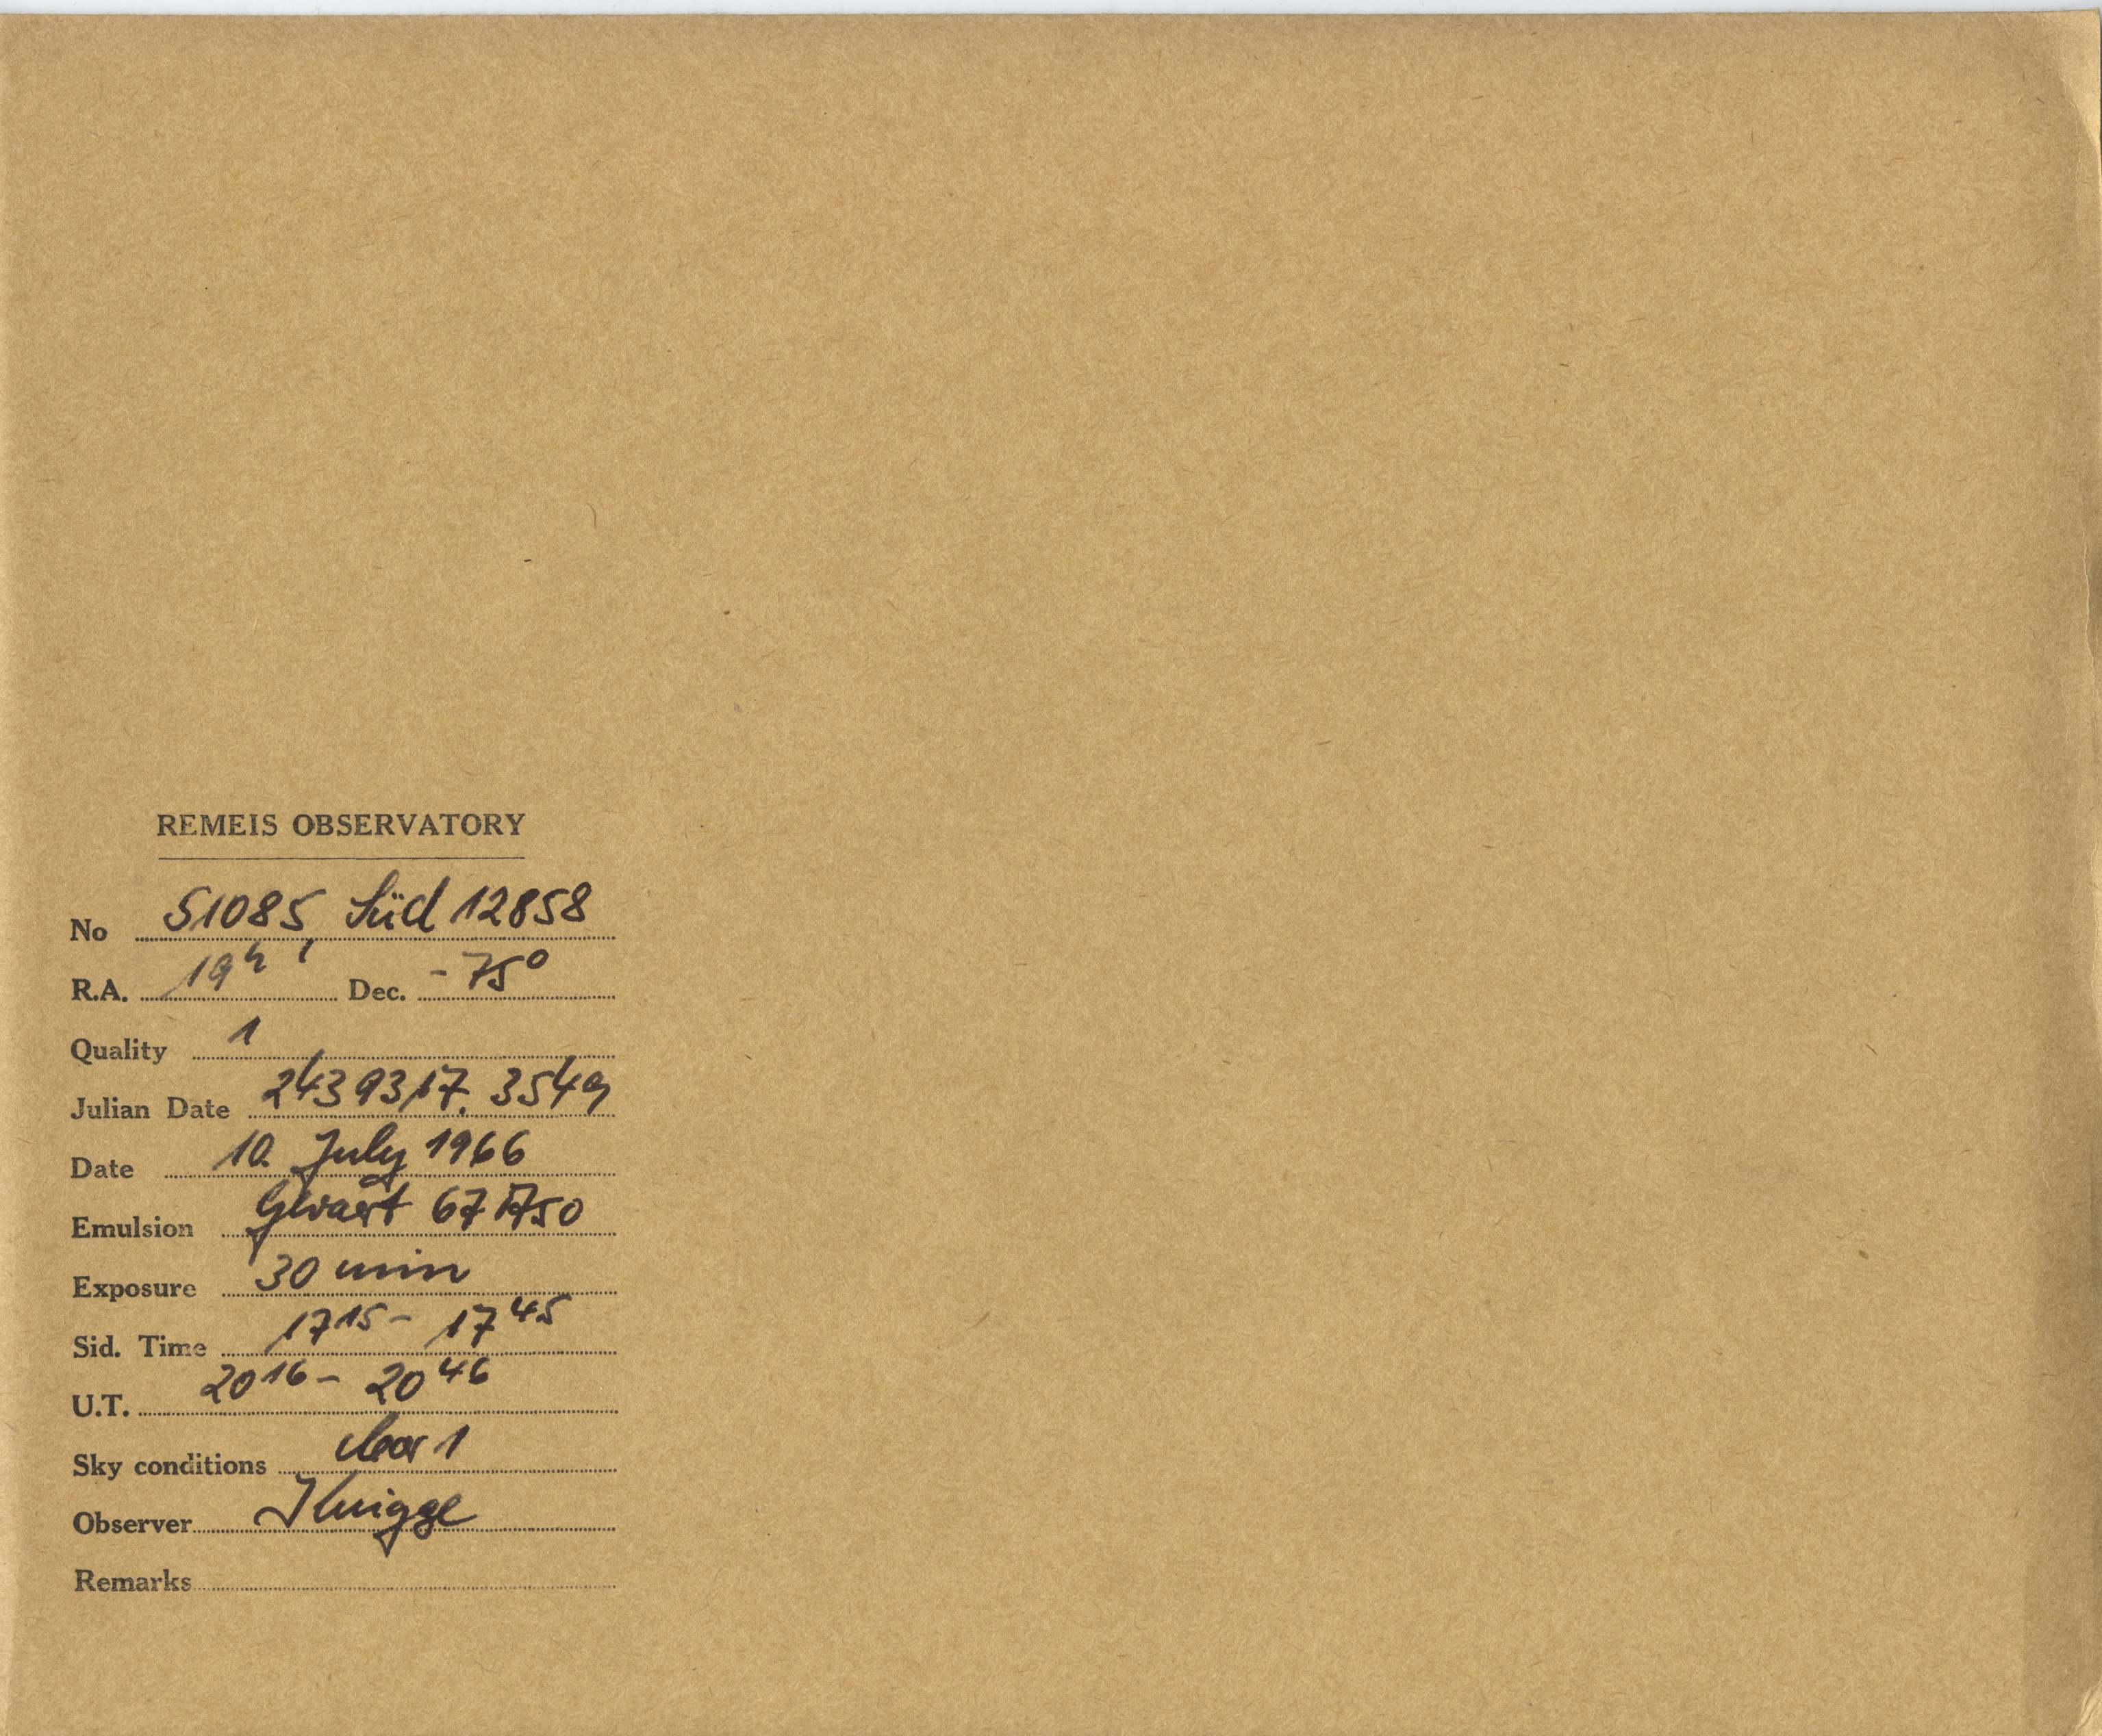 REMEIS OBSERVATORY
No S1085, Süd 12858
R.A. 19h Dec. -75°
Quality 1
Julian Date 2439317.3549
Date 10. July 1966
Emulsion Gevaert 67 A50
Exposure 30 min
Sid. Time 17 15 - 17 45
U.T. 20 16 - 20 46
Sky conditions clear 1
Observer Knigge
Remarks